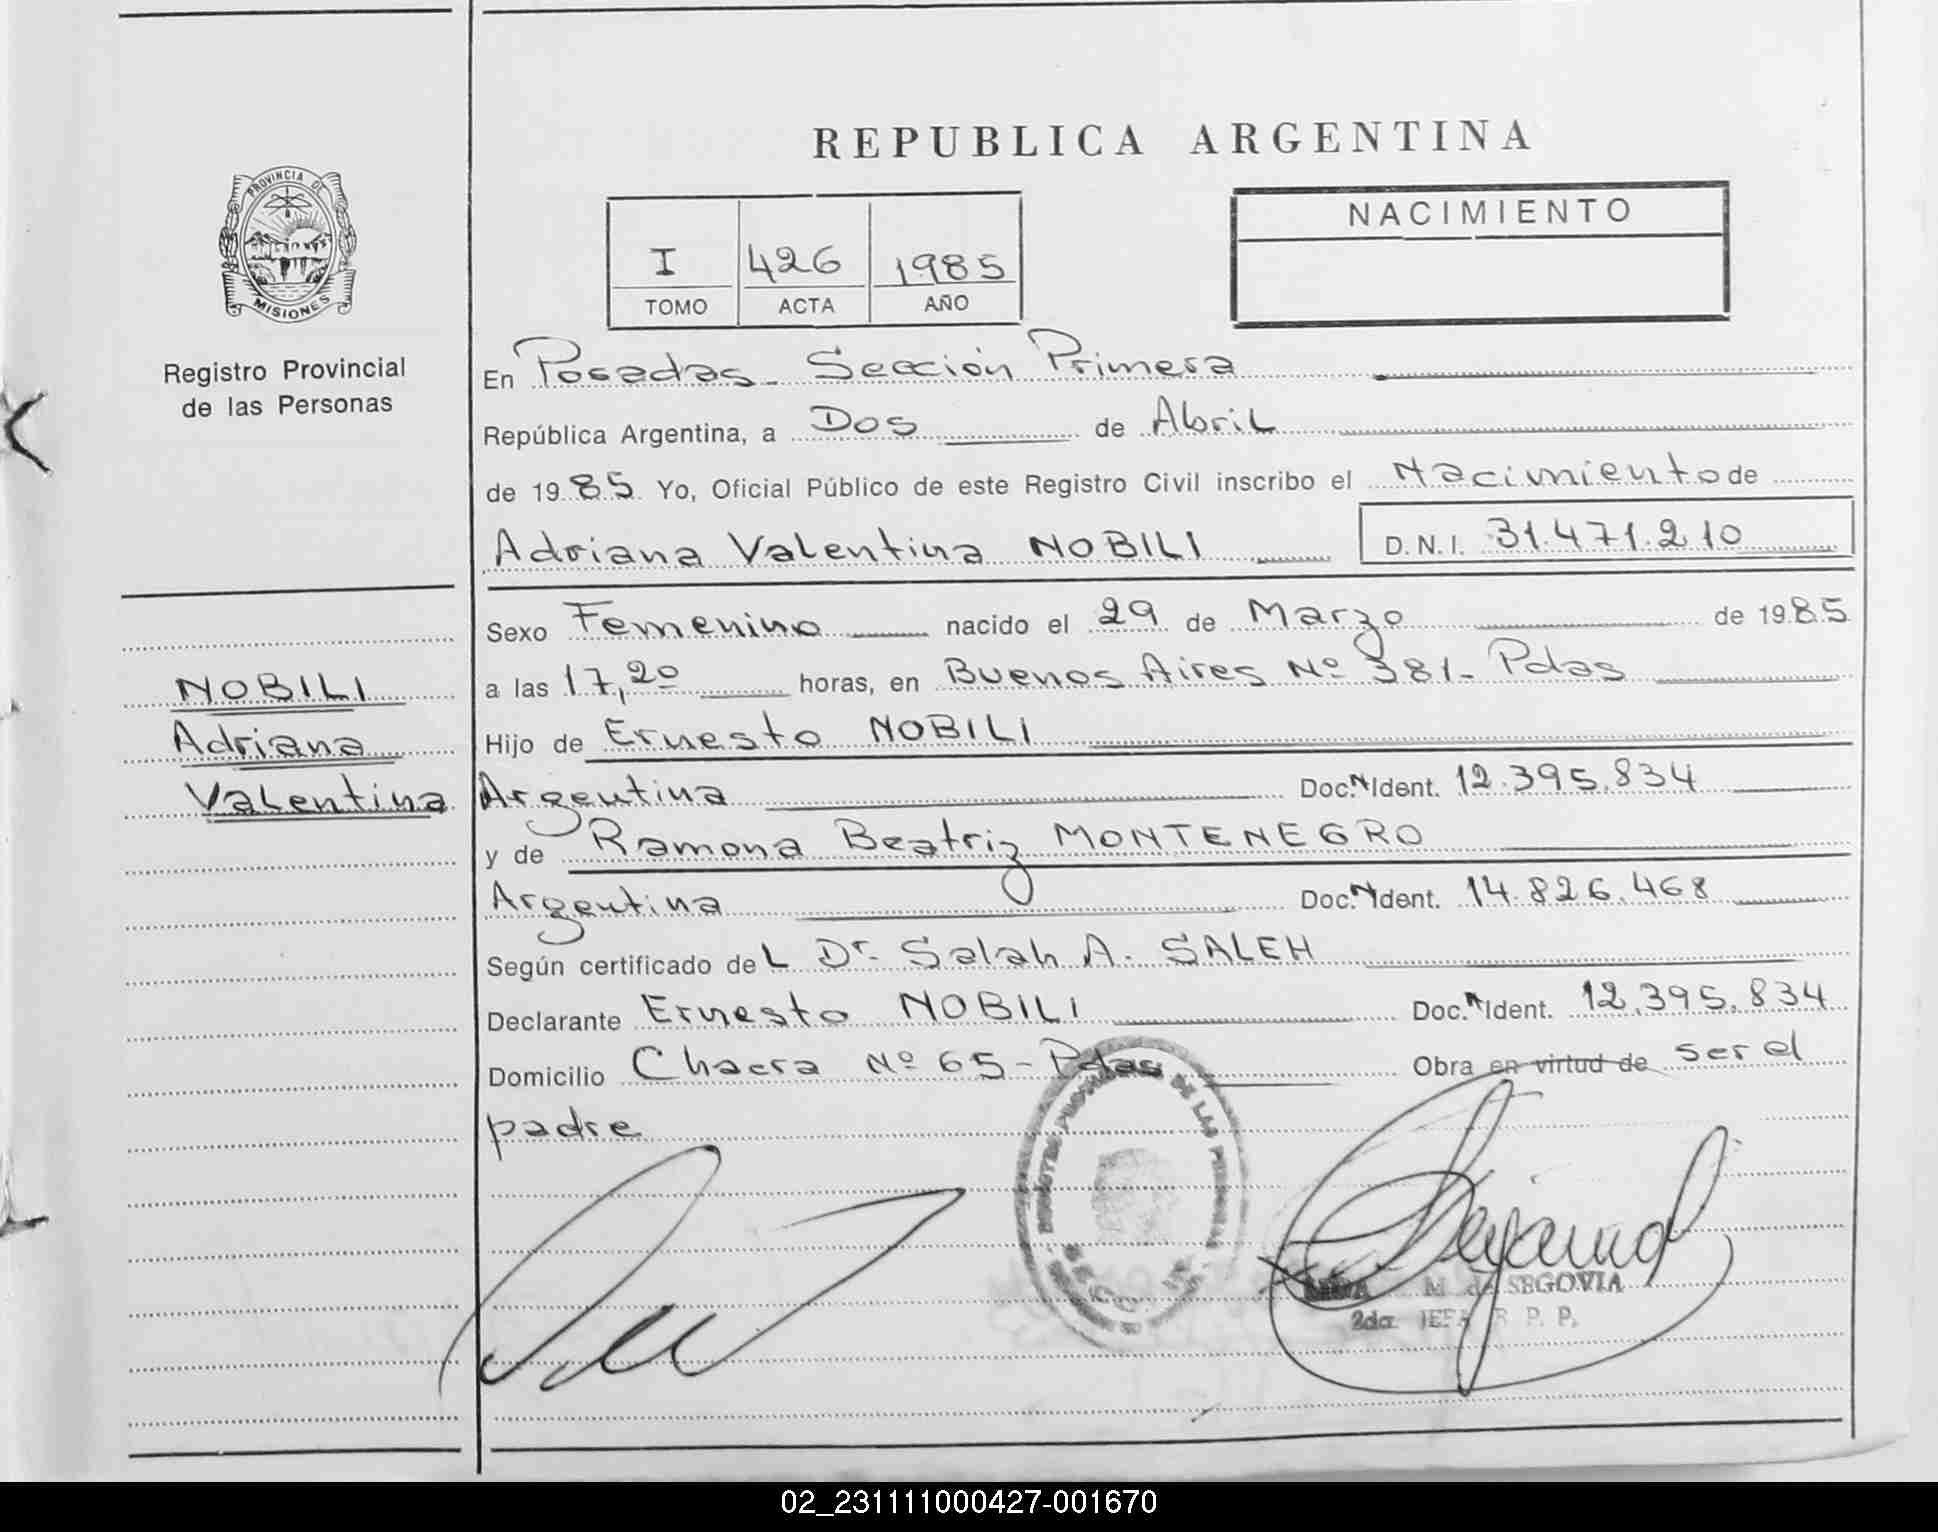 REPUBLICA ARGENTINA
PROVINCIA DE
MISIONES
Registro Provincial
de las Personas
NACIMIENTO
I 426 1985
TOMO ACTA AÑO
En Posadas - Sección Primera
República Argentina, a Dos de Abril
de 1985 Yo, Oficial Público de este Registro Civil inscribo el Nacimiento de
Adriana Valentina NOBILI D.N.I. 31.471.210
Sexo Femenino nacido el 29 de Marzo de 1985
NOBILI
Adriana
Valentina
a las 17,20 horas, en Buenos Aires Nº 381 - Pdas
Hijo de Ernesto NOBILI
Argentina Doc. N Ident. 12.395.834
y de Ramona Beatriz MONTENEGRO
Argentina Doc. N Ident. 14.826.468
Según certificado del Dr. Salah A. SALEH
Declarante Ernesto NOBILI Doc. N Ident. 12.395.834
Domicilio Chacra Nº 65 - Pdas Obra en virtud de ser el
padre
DE LAS PERSONAS
M. de SEGOVIA
2da. JEFA R. P. P.
02_231111000427-001670